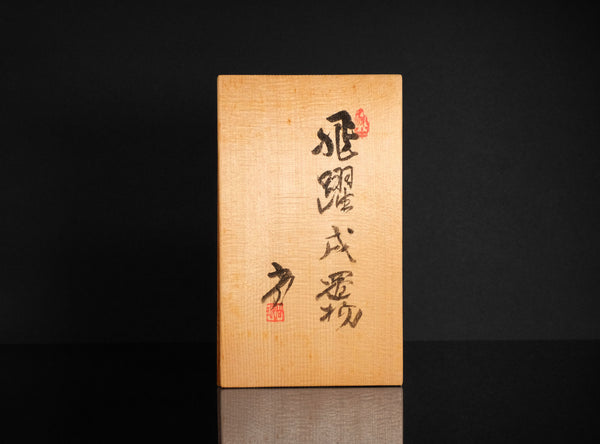 飛躍戌置物